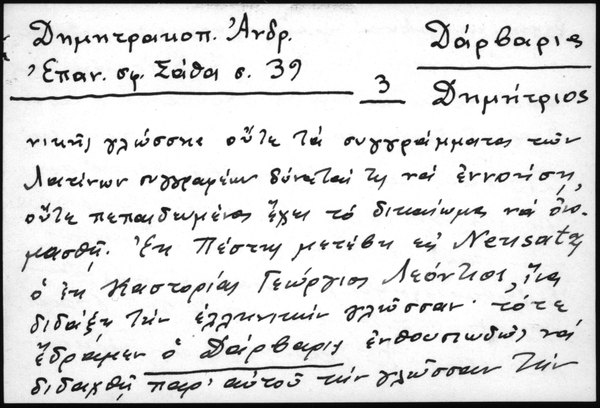 Δημητρακοπ. Ἀνδρ.
Ἐπαν. σφ. Σάθα σ. 39
Δάρβαρις
3
Δημήτριος
νικῆς γλώσσης οὔτε τὰ συγγράμματα τῶν
Λατίνων συγγραφέων δύναταί τις νὰ ἐννοήσῃ,
οὔτε πεπαιδευμένος ἔχει τὸ δικαίωμα νὰ ὀνο-
μασθῇ. Ἐκ Πέστης μετέβη εἰς Neusatz
ὁ ἐκ Καστορίας Γεώργιος Λεόντιος, ἵνα
διδάξῃ τὴν ἑλληνικὴν γλῶσσαν· τότε
ἔδραμεν ὁ Δάρβαρις ἐνθουσιωδῶς νὰ
διδαχθῇ παρ' αὐτοῦ τὴν γλῶσσαν τὴν